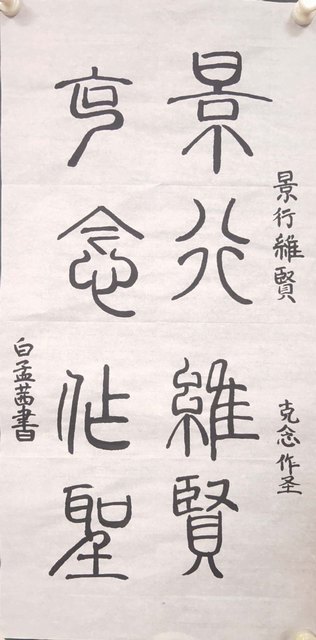 景行維賢
克念作聖
景行維賢
克念作圣
白孟茜書